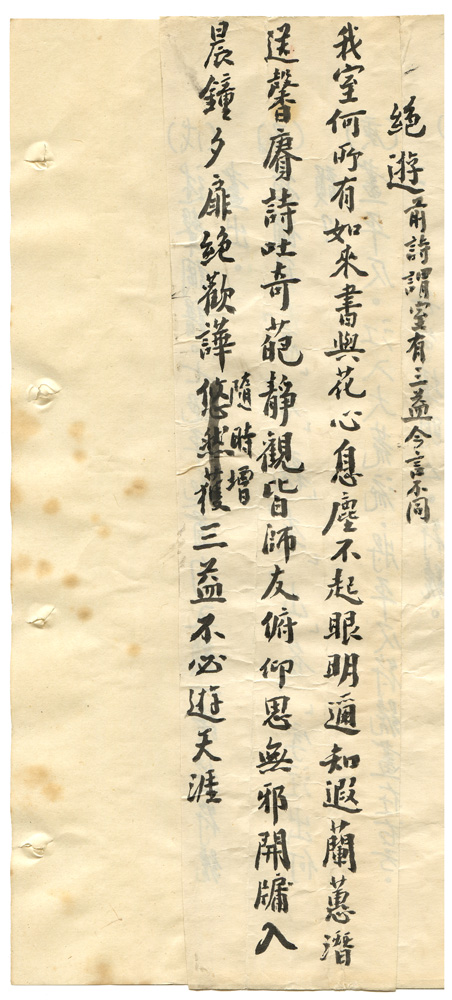 絕遊 前詩謂室有三益今言不同
我室何所有如來書與花心息塵不起眼明邇知遐蘭蕙潛
送馨賡詩吐奇葩靜觀皆師友俯仰思無邪開牖入
隨時增
晨鐘夕扉絕歡譁悠然獲三益不必遊天涯